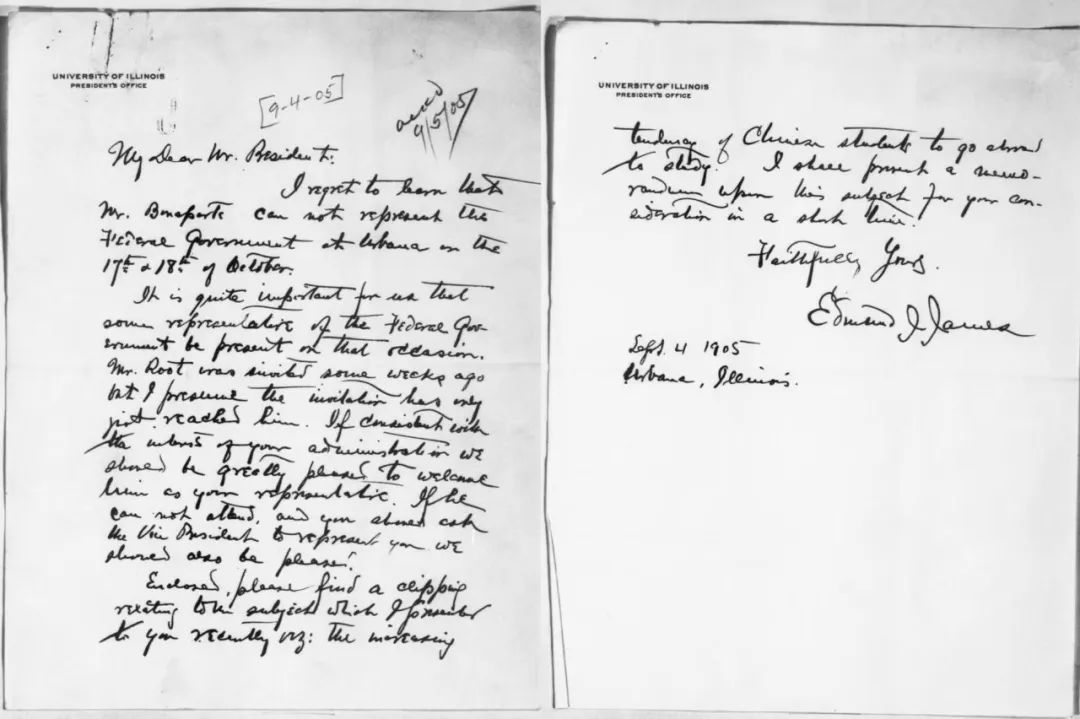 UNIVERSITY OF ILLINOIS
PRESIDENT'S OFFICE
[9-4-05]
ackd
9/5/05
My Dear Mr. President:
I regret to learn that
Mr. Bonaparte can not represent the
Federal Government at Urbana on the
17th & 18th of October.
It is quite important for us that
some representative of the Federal Gov-
ernment be present on that occasion.
Mr. Root was invited some weeks ago
but I presume the invitation has only
just reached him. If consistent with
the interests of your administration we
should be greatly pleased to welcome
him as your representative. If he
can not attend, and you should ask
the Vice President to represent you we
should also be pleased.
Enclosed, please find a clipping
relating to the subject which I presented
to you recently viz: the increasing
UNIVERSITY OF ILLINOIS
PRESIDENT'S OFFICE
tendency of Chinese students to go abroad
to study. I shall present a memo-
randum upon this subject for your con-
sideration in a short time.
Faithfully Yours.
Edmund J. James
Sept. 4 1905
Urbana, Illinois.